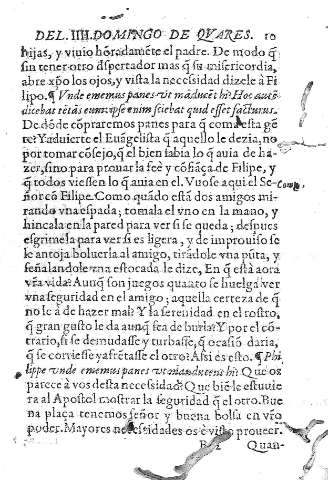 DEL. IIII. DOMINGO DE QVARES. 10
hijas, y viuio hõradamẽte el padre. De modo q̃
sin tener otro dispertador mas q̃ su misericordia,
abre xp̃o los ojos, y vista la necesidad dizele â Fi
lipo. ¶ Vnde ememus panes vt mãducẽt hi? Hoc autẽ
dicebat tẽtãs eum ipse enim sciebat quid esset facturus.
De dõde cõpraremos panes para q̃ coma esta gẽ
te? Y aduierte el Euãgelista q̃ aquello le dezia, no
por tomar cõsejo, q̃ el bien sabia lo q̃ auia de ha-
zer, sino para prouar la feè y cõfiãça de Filipe, y
q̃ todos viessen lo q̃ auia en el. Vuose aqui el Se-
ñor cõ Filipe. Como quãdo estã dos amigos mi-
rando vna espada; tomala el vno en la mano, y
hincala en la pared para ver si se queda; despues
esgrimela para ver si es ligera, y de improuiso se
le antoja boluerla al amigo, tirãdole vna pũta, y
señalandole vna estocada le dize, En q̃ està aora
vr̃a vida? Aunq̃ son juegos quanto se huelga ver
vna seguridad en el amigo; aquella certeza de q̃
no le á de hazer mal? Y la serenidad en el rostro,
q̃ gran gusto le da aunq̃ sea de burla? Y por el cõ-
trario, si se demudasse y turbasse, q̃ ocasiõ daria,
q̃ se corriesse y afrẽtasse el otro? Assi es esto. ¶ Phi-
lippe vnde ememus panes vt manducent hi? Que os
parece à vos desta necessidad? Que biẽ le estuuie
ra al Apostol mostrar la seguridad q̃ el otro. Bue
na plaça tenemos señor y buena bolsa en vr̃o
poder. Mayores necessidades os è visto proueer.
Quan-